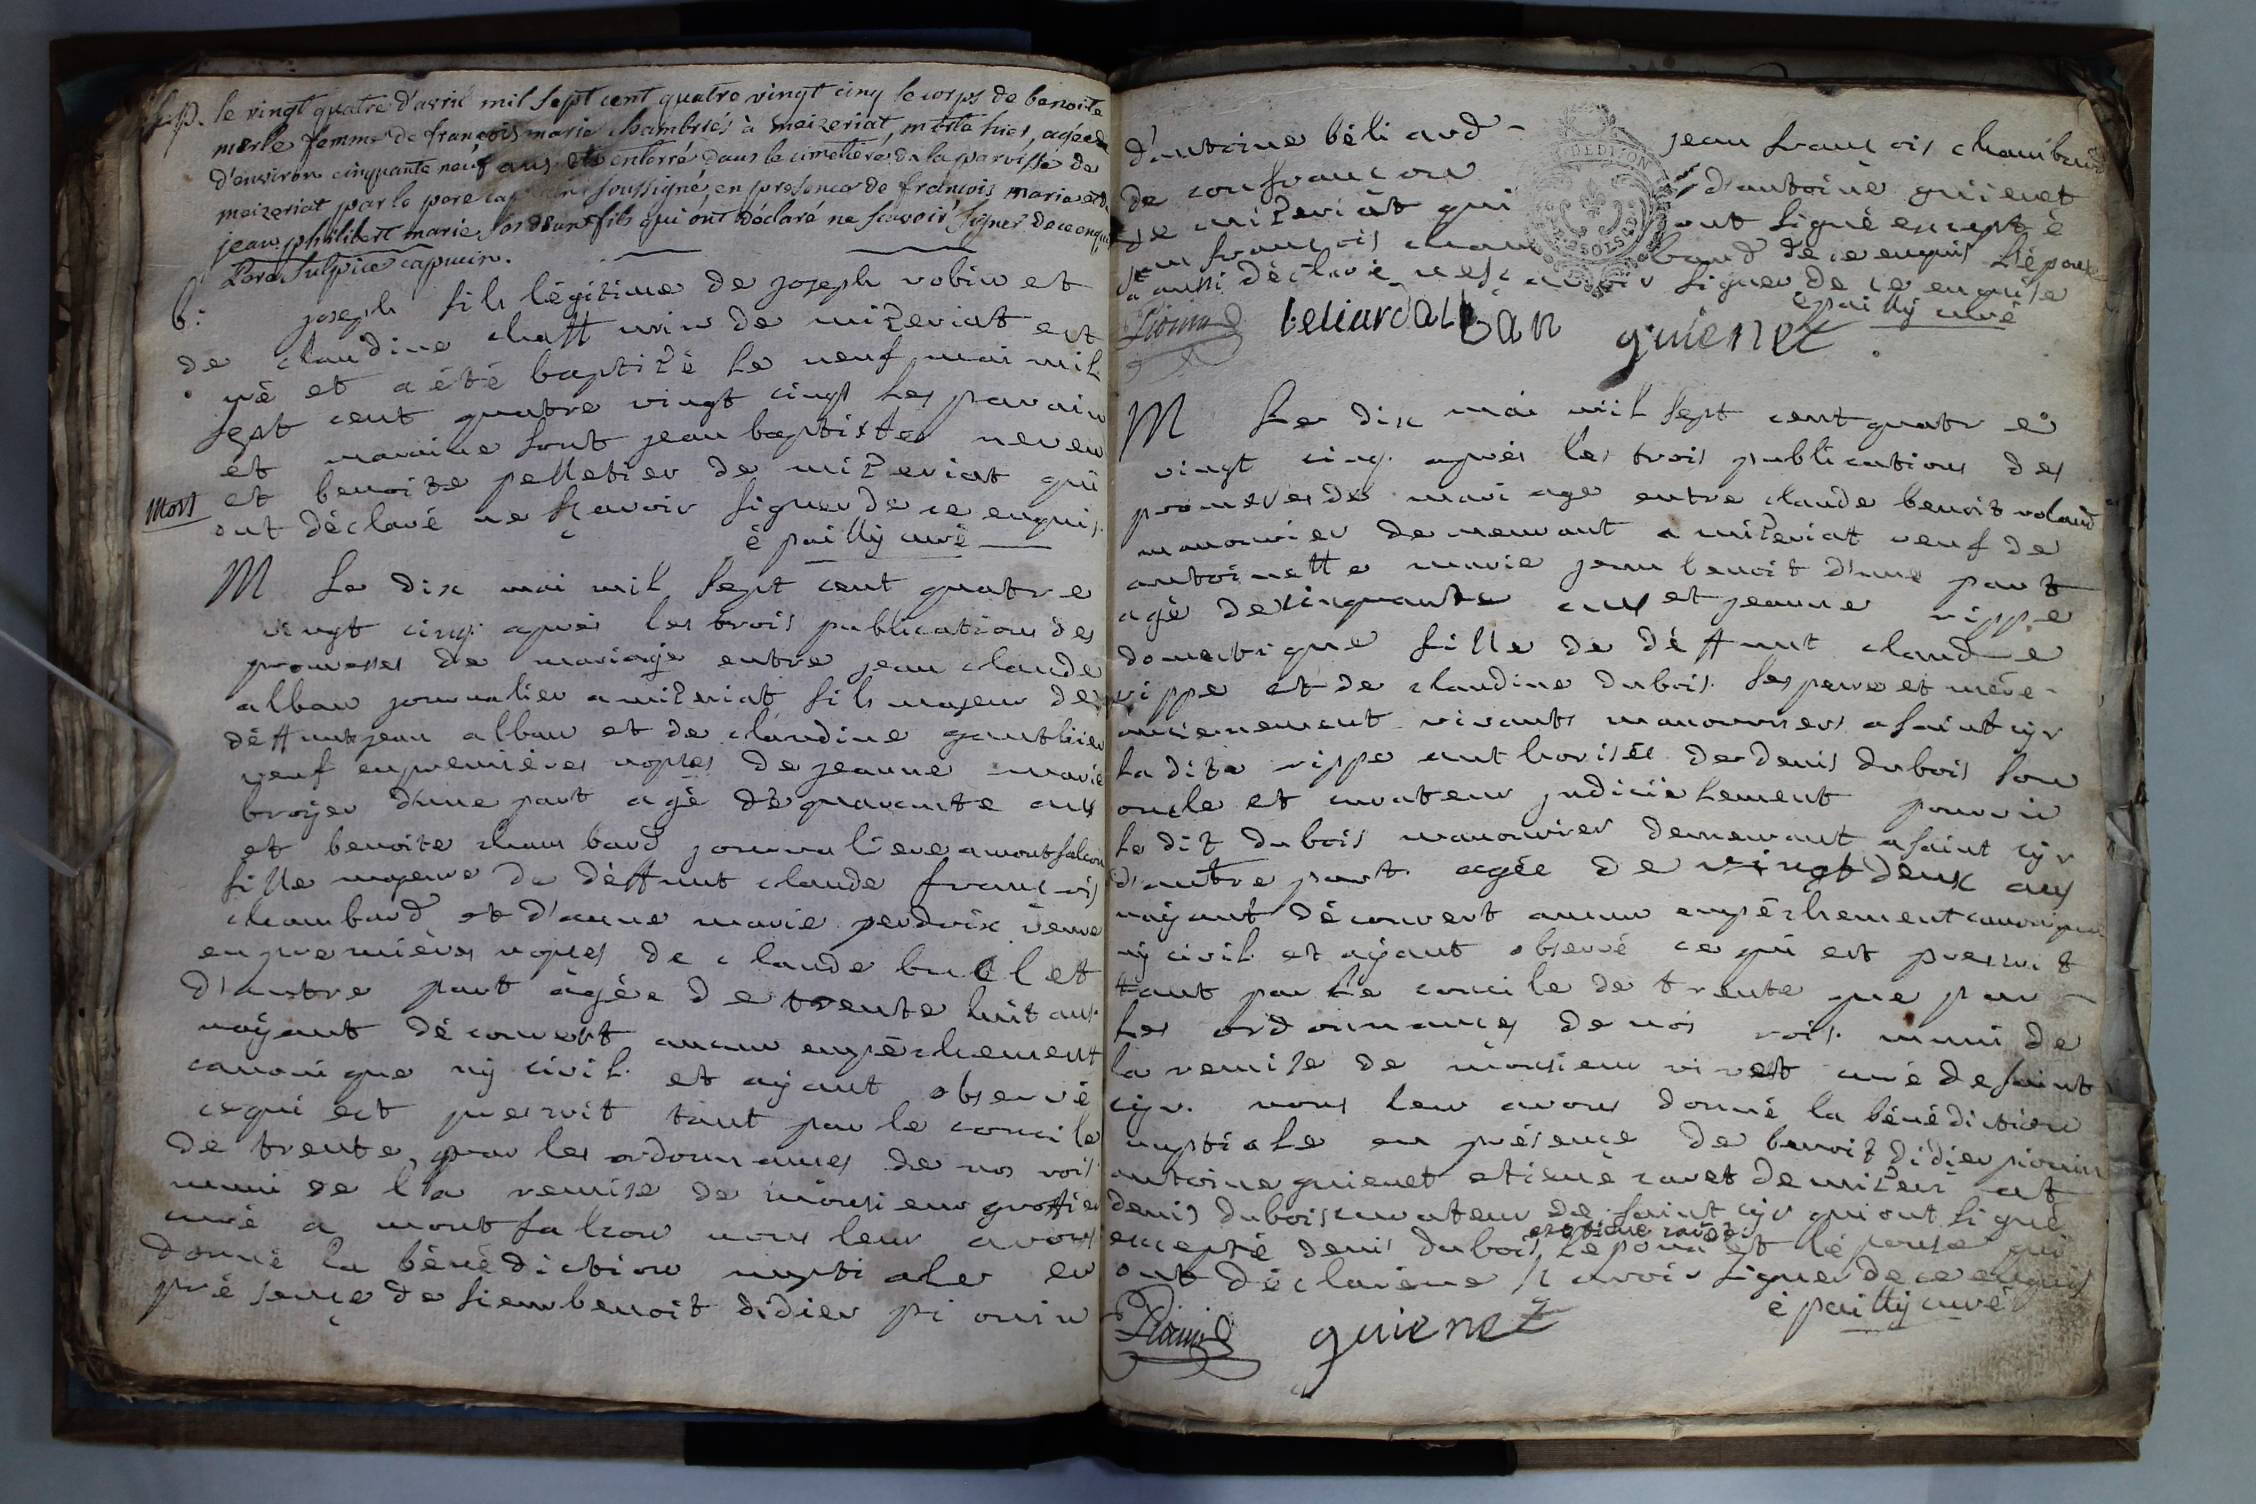 S.p. le vingt quatre d'avril mil sept cent quatre vingt cinq le corps de benoite
merle femme de françois marie chambrier à meizeriat, morte hier, agée
d'environ cinquante neuf ans été enterré dans le cimetiere de la parroisse de
meizeriat par le pere capucin soussigné en presence de françois marie et de
jean philibert marie ses deux fils qui ont déclaré ne scavoir signer de ce enquis
Pere Sulpice capucin.
b: joseph fils légitime de joseph robin et
de claudine chatt urin de mizeriat est
né et a été baptizé le neuf mai mil
sept cent quatre vingt cinq les parain
et maraine sont jean baptiste neveu
et benoite pelletier de mizeriat qui
mort
ont déclaré ne sçavoir signer de ce enquis.
é pailly curé
M Le dix mai mil sept cent quatre
vingt cinq. après les trois publications des
promesses de mariage entre jean claude
alban journalier a mizeriat fils majeur de
déffunt jean alban et de claudine gauthier
veuf en premières noples de jeanne marie
broyer d'une part agé de quarante ans
et benoite chambard journaliere a montfalcon
fille majeure de déffunt claude françois
chambard et d'anne marie perdrix veuve
en premières noples de claude bullet
d'autre part âgée de trente huit ans.
nayant découvert aucun empéchement
canonique ny civil. et ayant observé
ce qui est prescrit tant par le concile
de trente, par les ordonnances de nos rois
muni de la remise de monsieur grottier
curé a montfalcon nous leur avons
donné la bénédiction nuptiale en
présence de sieur benoit didier pionin
d'antoine béliard jean françois chambard
de confrancon d'antoine guienet
de mizeriat qui ont signé excepté
jean françois chambard de ce enquis l'épouse
a aussi déclaré ne sçavoir signer de ce enquise
é pailly curé
Pionin beliard alban guienet
M Le dix mai mil sept cent quatre
vingt cinq. après les trois publications des
promesses de mariage entre claude benoit roland
manouvrier demeurant a mizeriat veuf de
antoinette marie jean benoit d'une part
agé de cinquante ans et jeanne rippe
domestique fille de déffunt claude
rippe et de claudine dubois. ses pere et mère
anciennement vivants manouvriers a saint cyr
ladite rippe authorisée de denis dubois son
oncle et curateur judiciellement pourvu
le dit dubois manouvrier demeurant a saint cyr
d'autre part. agée de vingt deux ans
nayant découvert aucun empéchement canonique
ny civil. et ayant observé ce qui est prescrit
tant par le concile de trente que par
les ordonnances de nos rois. muni de
la remise de monsieur vivet curé de saint
cyr. nous leur avons donné la bénédiction
nuptiale en présence de benoit didier pionin
antoine guienet etiene ravet de mizeriat
denis dubois curateur de saint cyr qui ont signé
et etiene ravet
excepté denis dubois, l'époux et l'épouse qui
ont déclaré ne sçavoir signer de ce enquis
é pailly curé
Pionin guienet